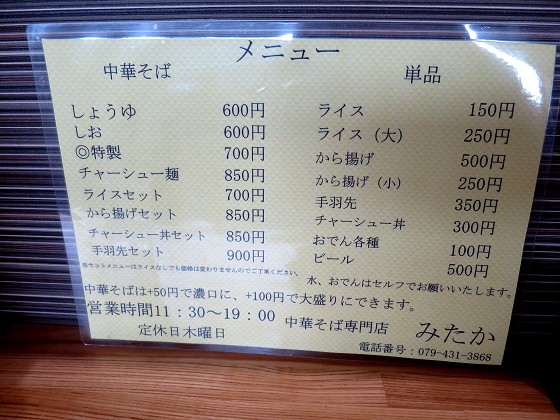 メニュー
中華そば
しょうゆ 600円
しお 600円
◎特製 700円
チャーシュー麺 850円
ライスセット 700円
から揚げセット 850円
チャーシュー丼セット 850円
手羽先セット 900円
※セットメニューはライスなしでも価格は変わりませんのでご了承ください。
単品
ライス 150円
ライス（大） 250円
から揚げ 500円
から揚げ（小） 250円
手羽先 350円
チャーシュー丼 300円
おでん各種 100円
ビール 500円
水、おでんはセルフでお願いいたします。
中華そばは+50円で濃口に、+100円で大盛りにできます。
営業時間11：30〜19：00
定休日木曜日
中華そば専門店 みたか
電話番号：079-431-3868